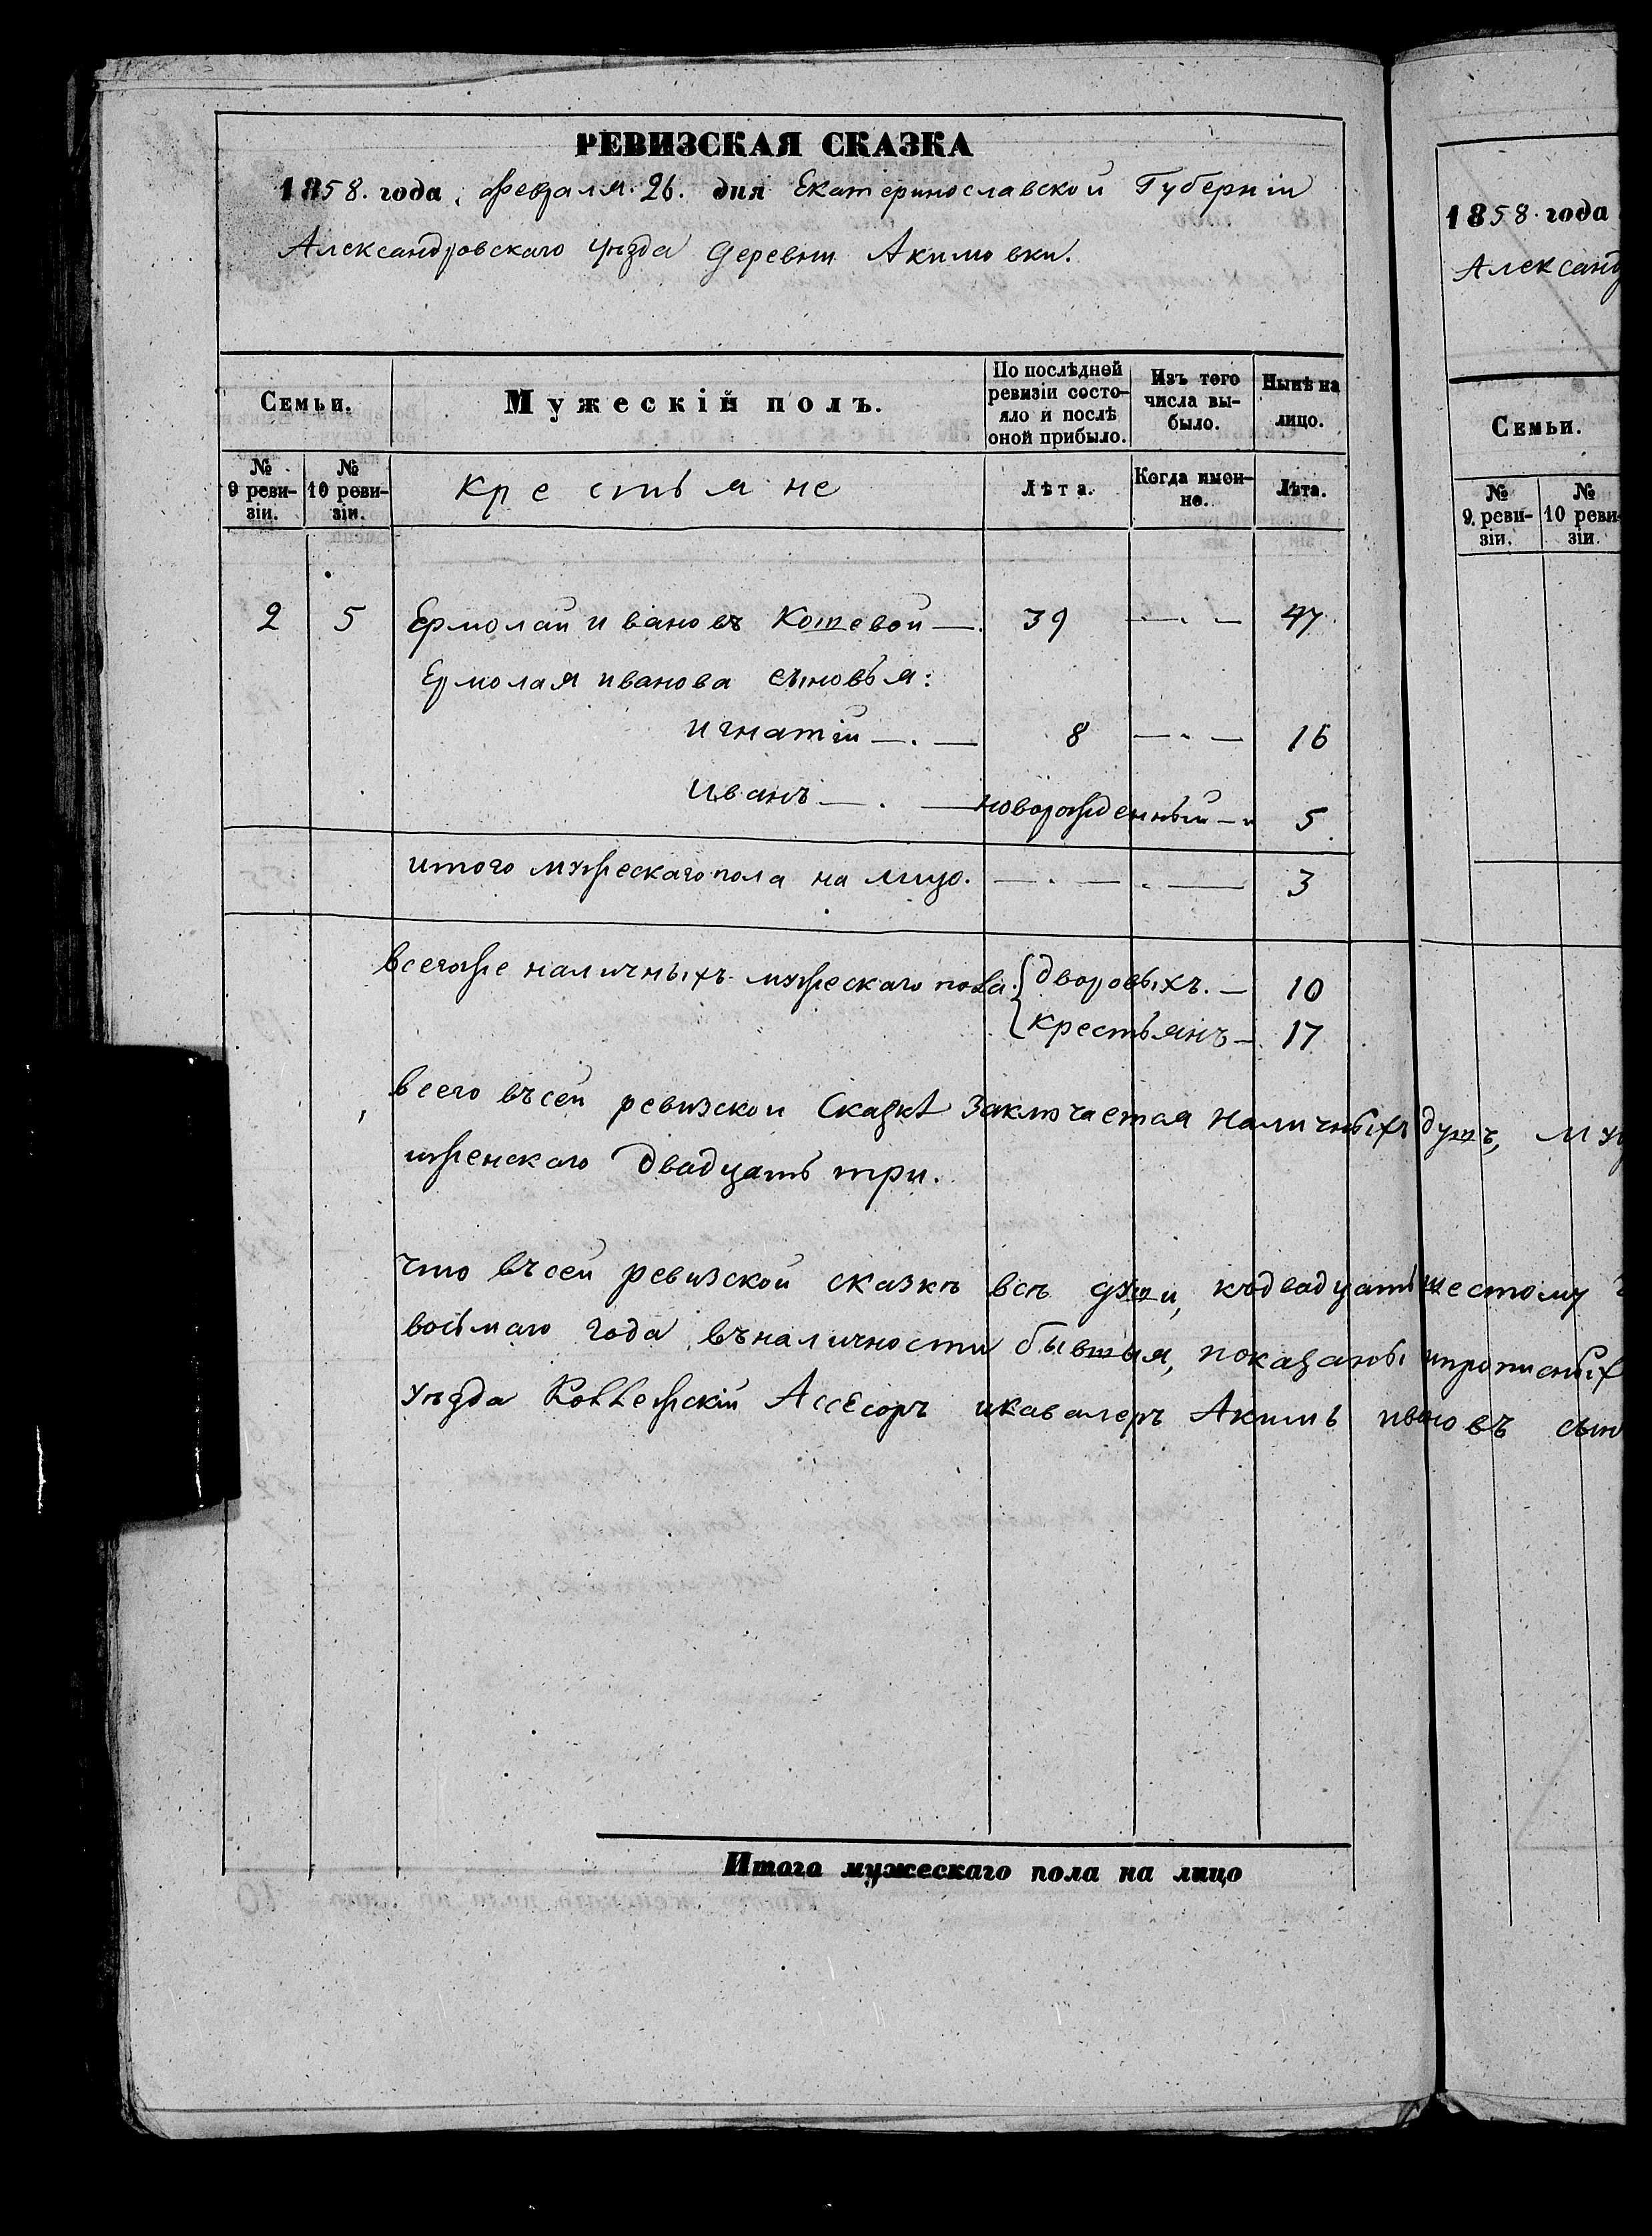 РЕВИЗСКАЯ СКАЗКА
1858. года, февраля. 26. дня Екатеринославской Губерніи
Александровскаго уѣзда деревни Акимовки.
Семьи.
Мужескій полъ.
По послѣдней ревизіи состо-
яло и послѣ
оной прибыло.
Изъ того
числа вы-
было.
Нынѣ на
лицо.
№
9 реви-
зіи.
№
10 реви-
зіи.
крестьяне
Лѣта.
Когда имен-
но.
Лѣта.
2 5 Ермолай ивановъ Кошевой —. 39 —.— 47
Ермолая иванова сыновья:
игнатій —.— 8 —.— 16
иванъ —.— новорожденный — 5
итого мужескаго пола на лицо. —.—.— 3
всегоже наличныхъ мужескаго пола. { дворовыхъ. — 10
{ крестьянъ — 17
всего въсей ревизской Сказкѣ заключается наличныхъ душъ, му
иженскаго двадцать три.
что въсей ревизской сказкѣ всѣ души, къдвадцать шестому
восьмаго года въналичности бывшия, показаны ипрописных
уѣзда Коллежскій Ассесоръ икавалеръ Акимъ ивановъ сын
Итого мужескаго пола на лицо
1858. года
Александ
Семьи.
№
9. реви-
зіи.
№
10 реви
зіи.